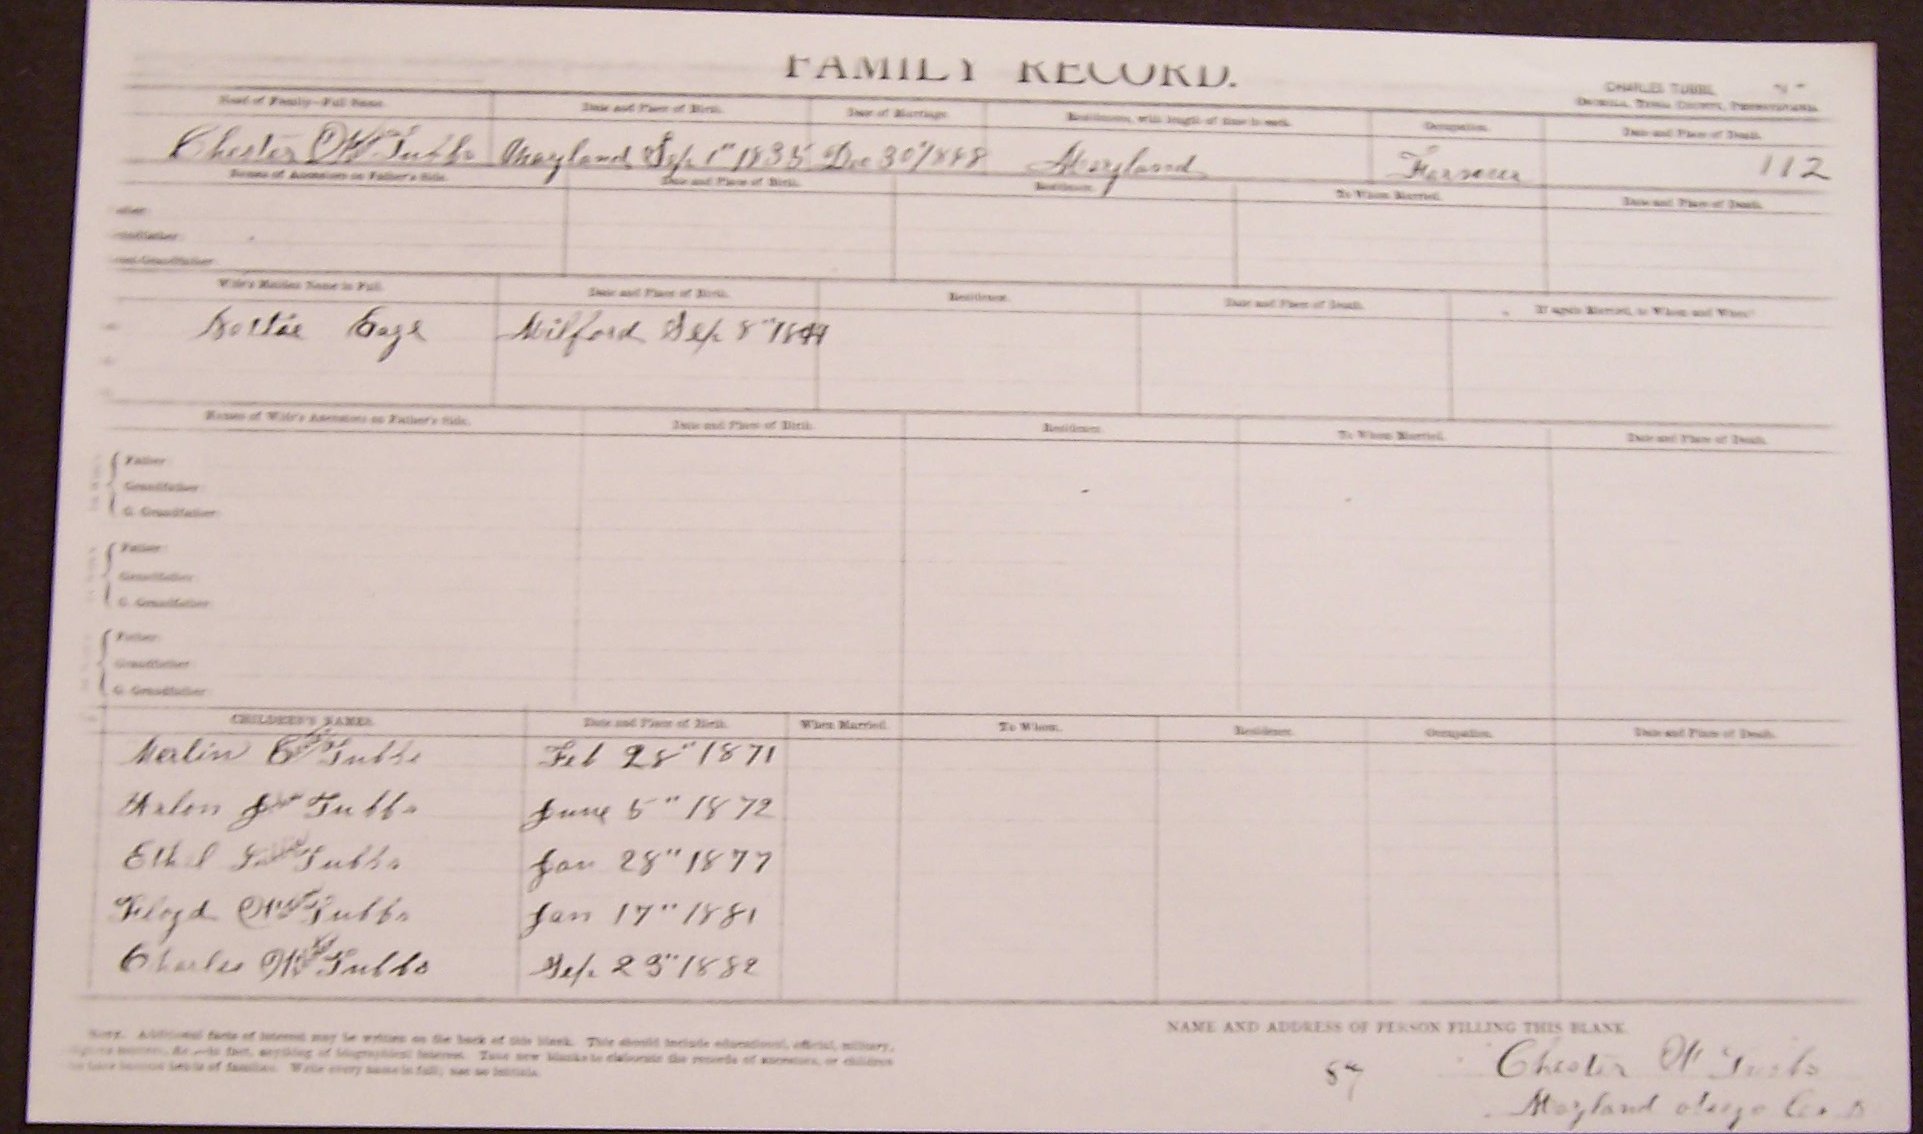 FAMILY RECORD.
CHARLES TUBBS,
Osceola, Tioga County, Pennsylvania.
Head of Family—Full Name. Date and Place of Birth. Date of Marriage. Residences, with length of time in each. Occupation. Date and Place of Death.
Chester W Tubbs Maryland Sep 1" 1835 Dec 30" Maryland Farmer 112
Names of Ancestors on Father's Side. Date and Place of Birth. Residence. To Whom Married. Date and Place of Death.
Wife's Maiden Name in Full. Date and Place of Birth. Residence. Date and Place of Death. If again Married, to Whom and When?
Gage Milford Sep 8" 18
Names of Wife's Ancestors on Father's Side. Date and Place of Birth. Residence. To Whom Married. Date and Place of Death.
Father:
Grandfather:
G. Grandfather:
Father:
Grandfather:
G. Grandfather:
Father:
Grandfather:
G. Grandfather:
CHILDREN'S NAMES. Date and Place of Birth. When Married. To Whom. Residence. Occupation. Date and Place of Death.
Merlin Tubbs Feb 28" 1871
Tubbs June 5" 1872
Ethel Tubbs Jan 28" 1877
Floyd Tubbs Jan 17" 1881
Charles W Tubbs Sep 23" 1882
Note. Additional facts of interest may be written on the back of this blank. This should include educational, official, military,
anything of biographical interest. Take new blanks to elaborate the records of ancestors, or children
heads of families. Write every name in full; use no initials.
NAME AND ADDRESS OF PERSON FILLING THIS BLANK.
87 Chester W Tubbs
Maryland otsego Co